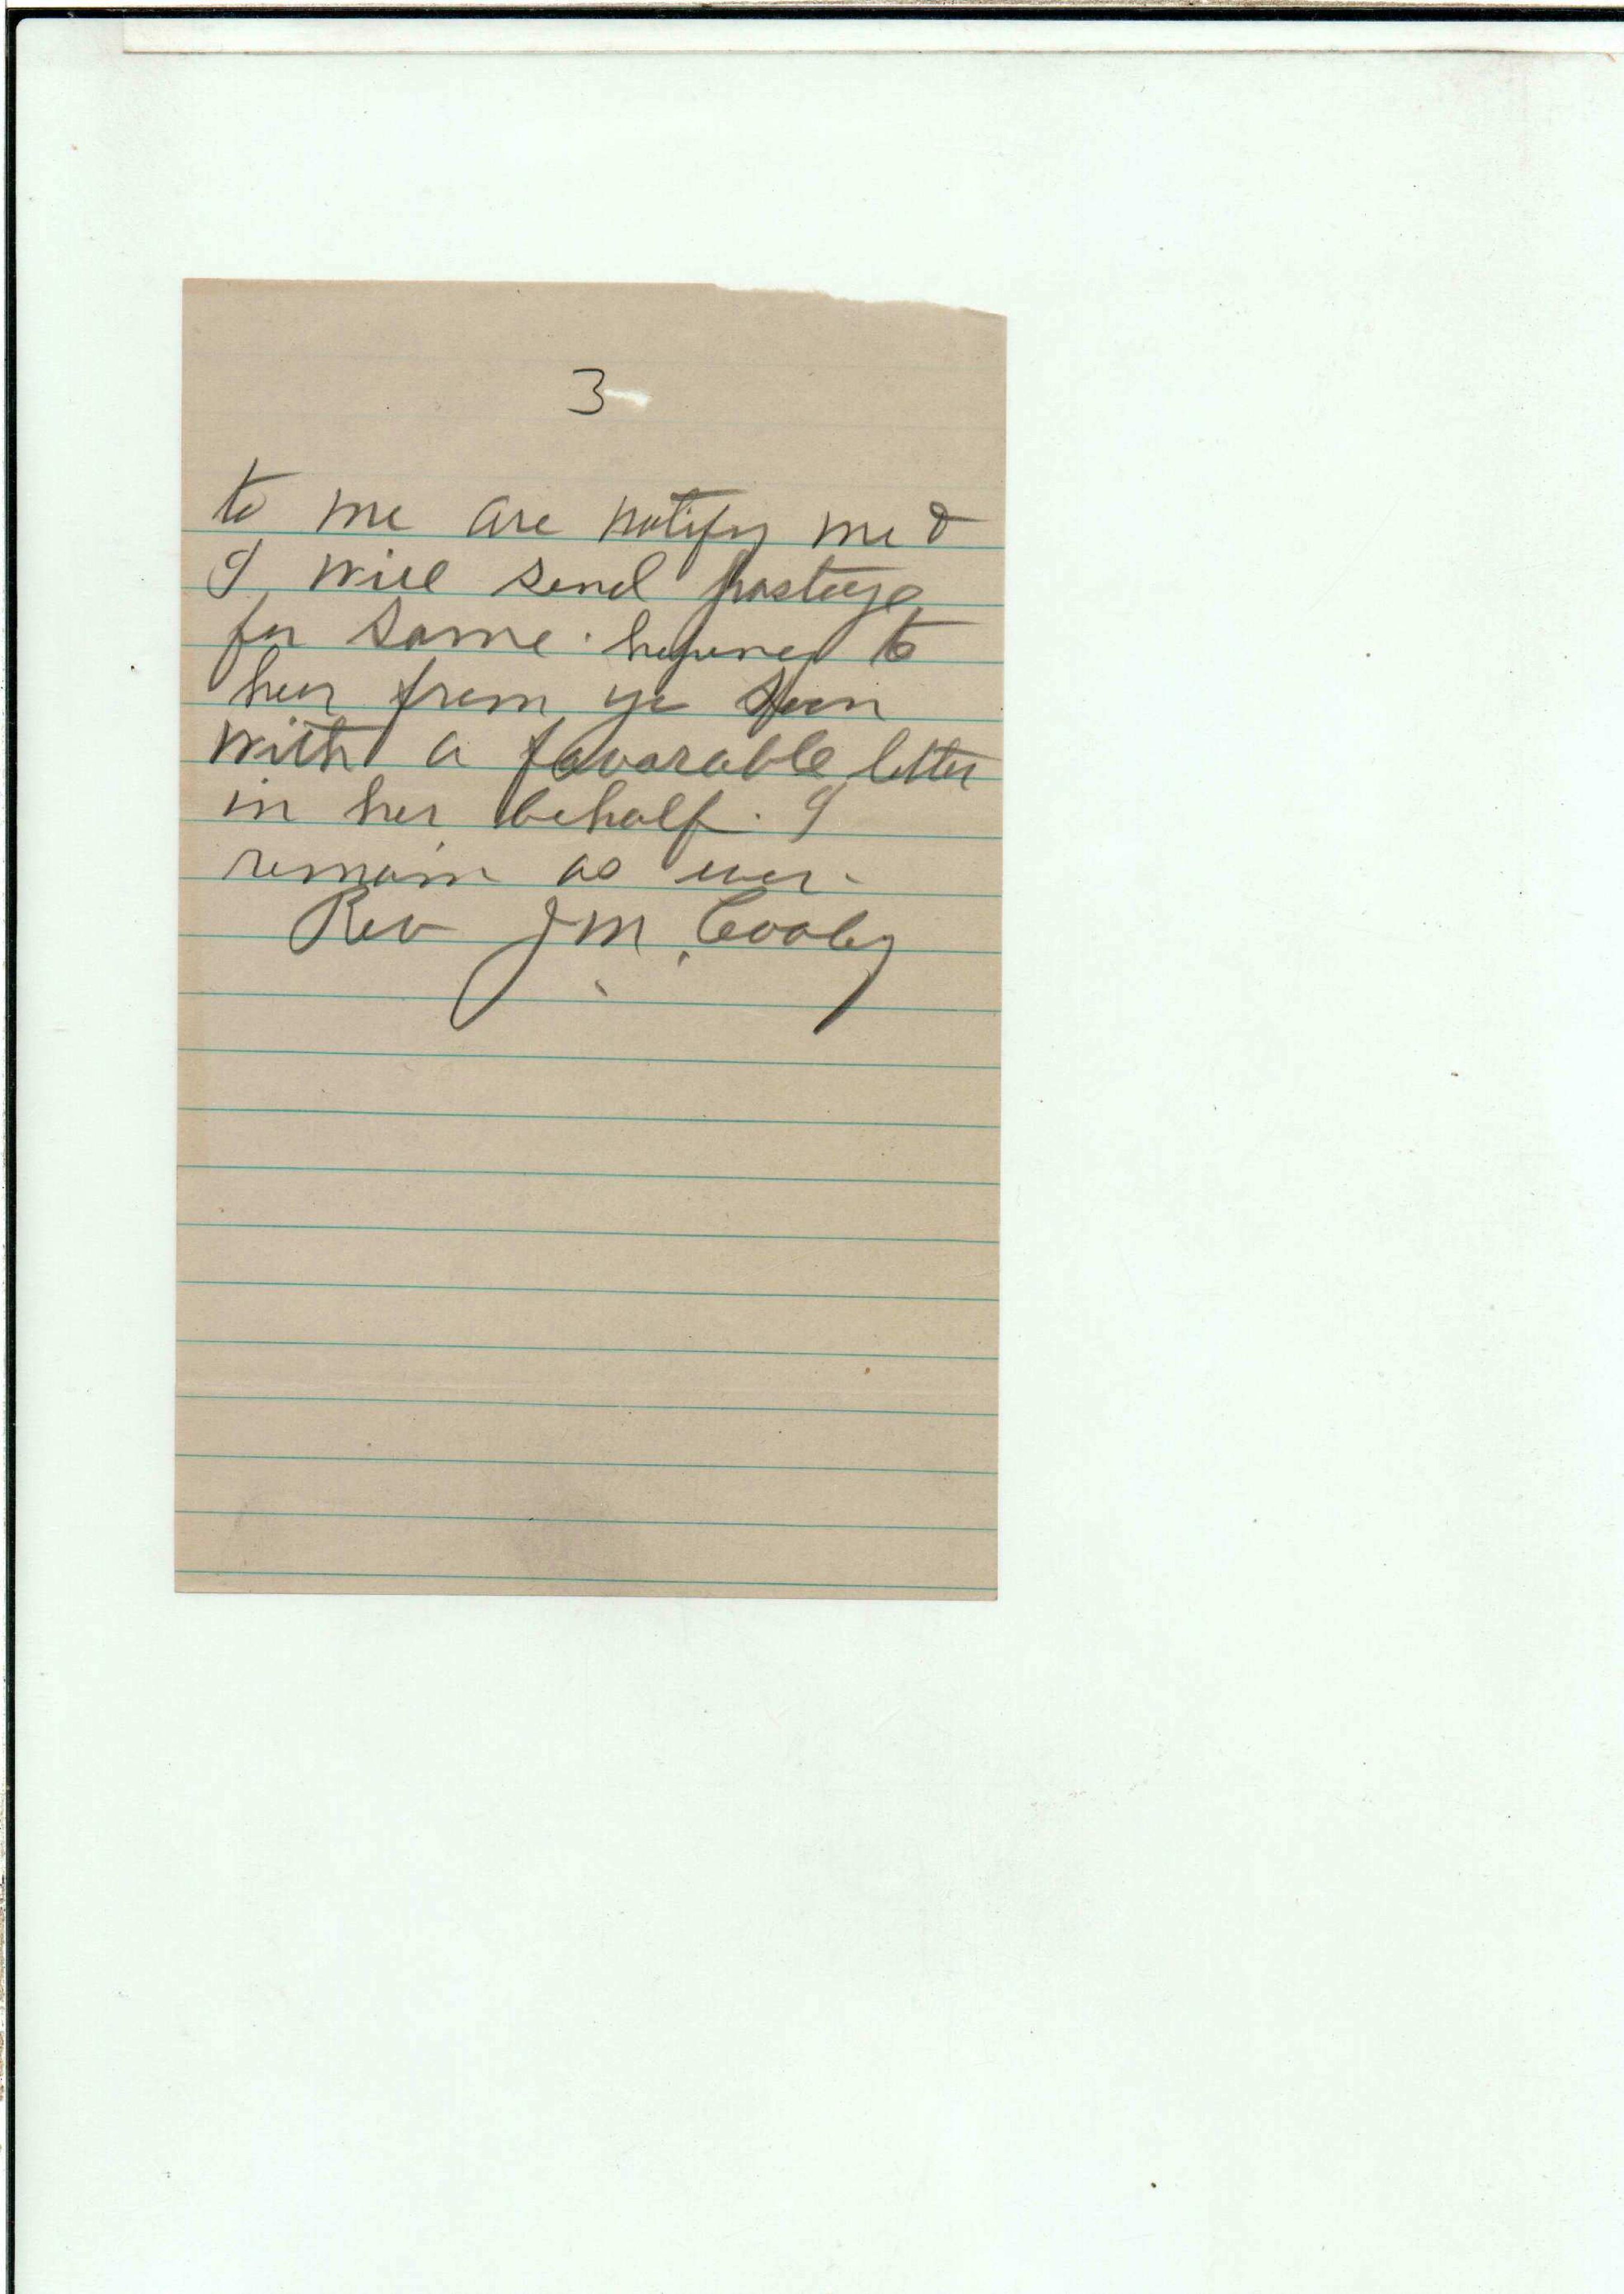 3
to me are notify me &
I will send postage
for same. hopeing to
hear from yo soon
with a favorable letter
in her behalf. I
remain as ever.
Rev J. M. Cooley